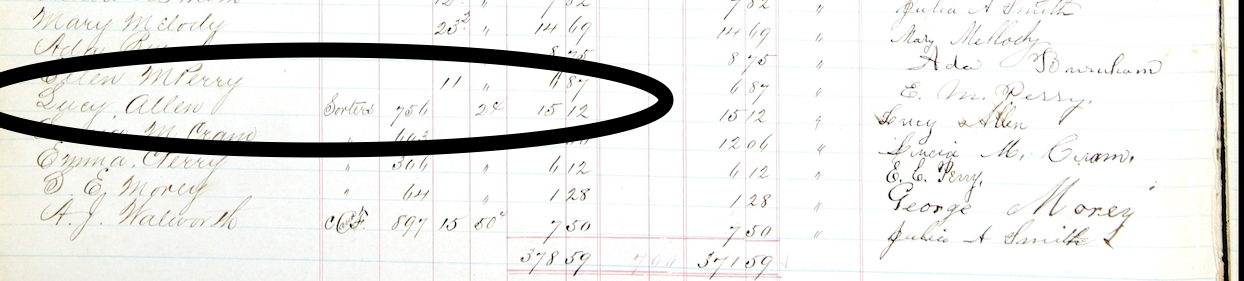 12. " 7 82 7 82 " Julia A Smith
Mary Melody 23² " 14 69 14 69 " Mary Mellody
Ada 8 75 8 75 " Ada Burnham
Ellen M Perry 11 " 6 87 6 87 " E. M. Perry.
Lucy Allen Sorters 756 2¢ 15 12 15 12 " Lucy Allen
M. Cram " 603 12 06 " Lucia M. Cram.
Emma C Perry " 306 " 6 12 6 12 " E. C. Perry.
G E Morey " 64 " 1 28 1 28 " George Morey
A. J. Walworth 897 15 50¢ 7 50 7 50 " Julia A Smith
378 59 7 00 371 59